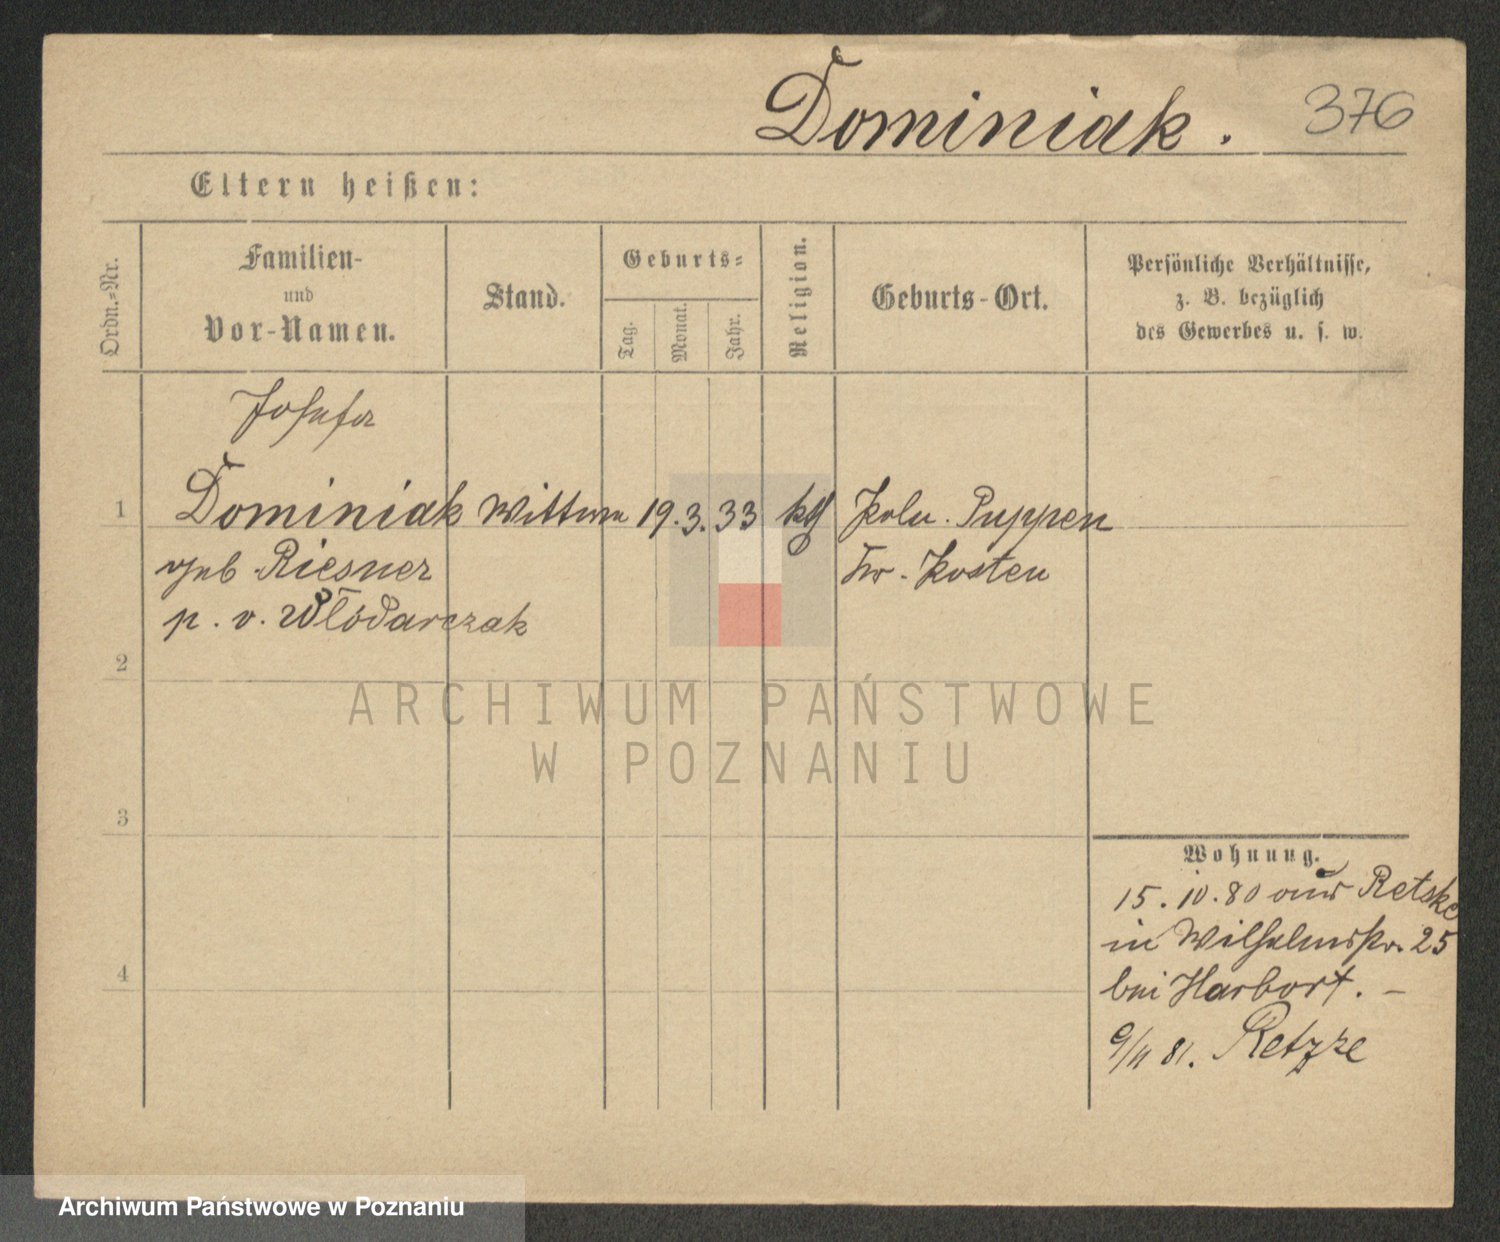 Dominiak. 376
Eltern heißen:
Ordn.-Nr.
Familien-
und
Vor-Namen.
Stand.
Geburts-
Tag.
Monat.
Jahr.
Religion.
Geburts-Ort.
Persönliche Verhältnisse,
z. B. bezüglich
des Gewerbes u. s. w.
Josefa
1 Dominiak Wittwe 19. 3. 33 kth Poln. Puppen
geb Riesner Kr. Kosten
p. v. Włodarczak
2
ARCHIWUM PAŃSTWOWE
W POZNANIU
3
Wohnung.
15. 10. 80 aus Retske
in Wilhelmstr. 25
4 bei Harbort. –
9/11 81. Retzke
Archiwum Państwowe w Poznaniu